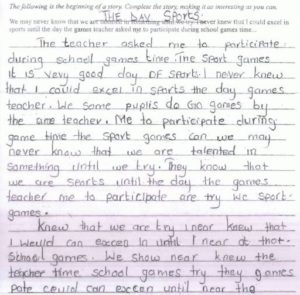 The following is the beginning of a story. Complete the story, making it as interesting as you can.
THE DAY SPORTS.
We may never know that we are talented in something until we try. I never knew that I could excel in
sports until the day the games teacher asked me to participate during school games time...
The teacher asked me to participate
during school games time. The Sport games
it is very good day OF sports I never knew
that I could excel in sports the day games
teacher. We some pupils do Go games by
the teacher. Me to participate during
game time the sport games can we may
never know that we are talented in
something until we try. They know that
we are sports until the day the games
teacher me to participate are try we sport
games.
Knew that we are try I near knew that
I would can exceen in until I near at that
School games. We show near knew the
teacher time school games try they games
pate could can exceen until near the